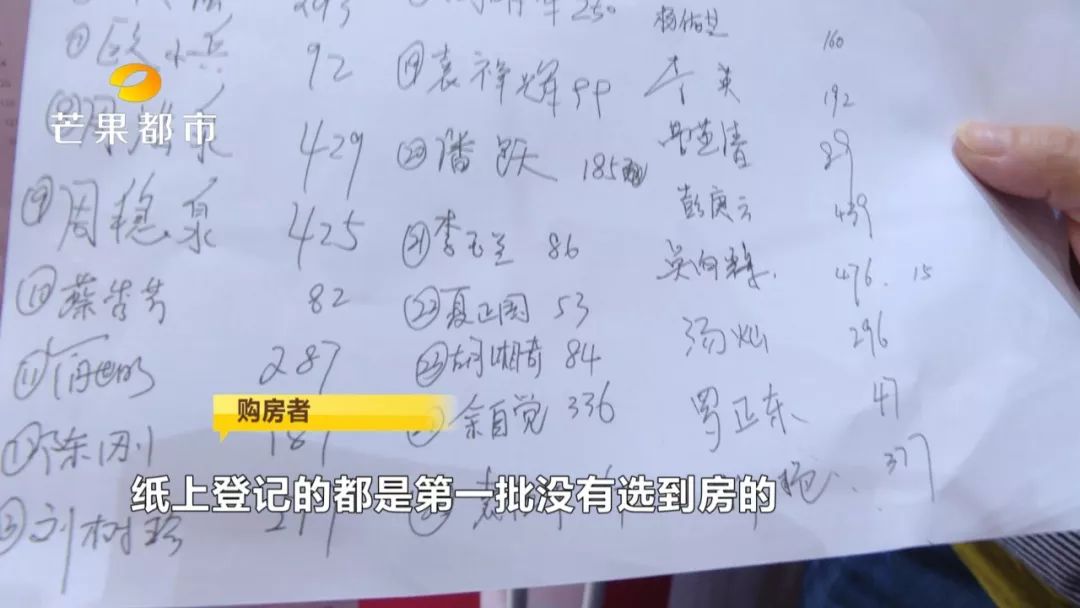 250
⑦ 欧小兵 92
⑧ 周 泉 429
⑨ 周稳泉 425
⑩ 蔡香芳 82
⑪ 287
陈刚 187
刘树珍
⑲ 袁祥辉 99
⑳ 潘跃 185
㉑ 李玉兰 86
㉒ 夏正国 53
㉓ 胡湘奇 84
余自觉 336
杨佑芝 160
英 192
清 89
彭庚云 439
吴向辉. 476. 15
汤灿 296
罗正东 47
377
芒果都市
购房者
纸上登记的都是第一批没有选到房的